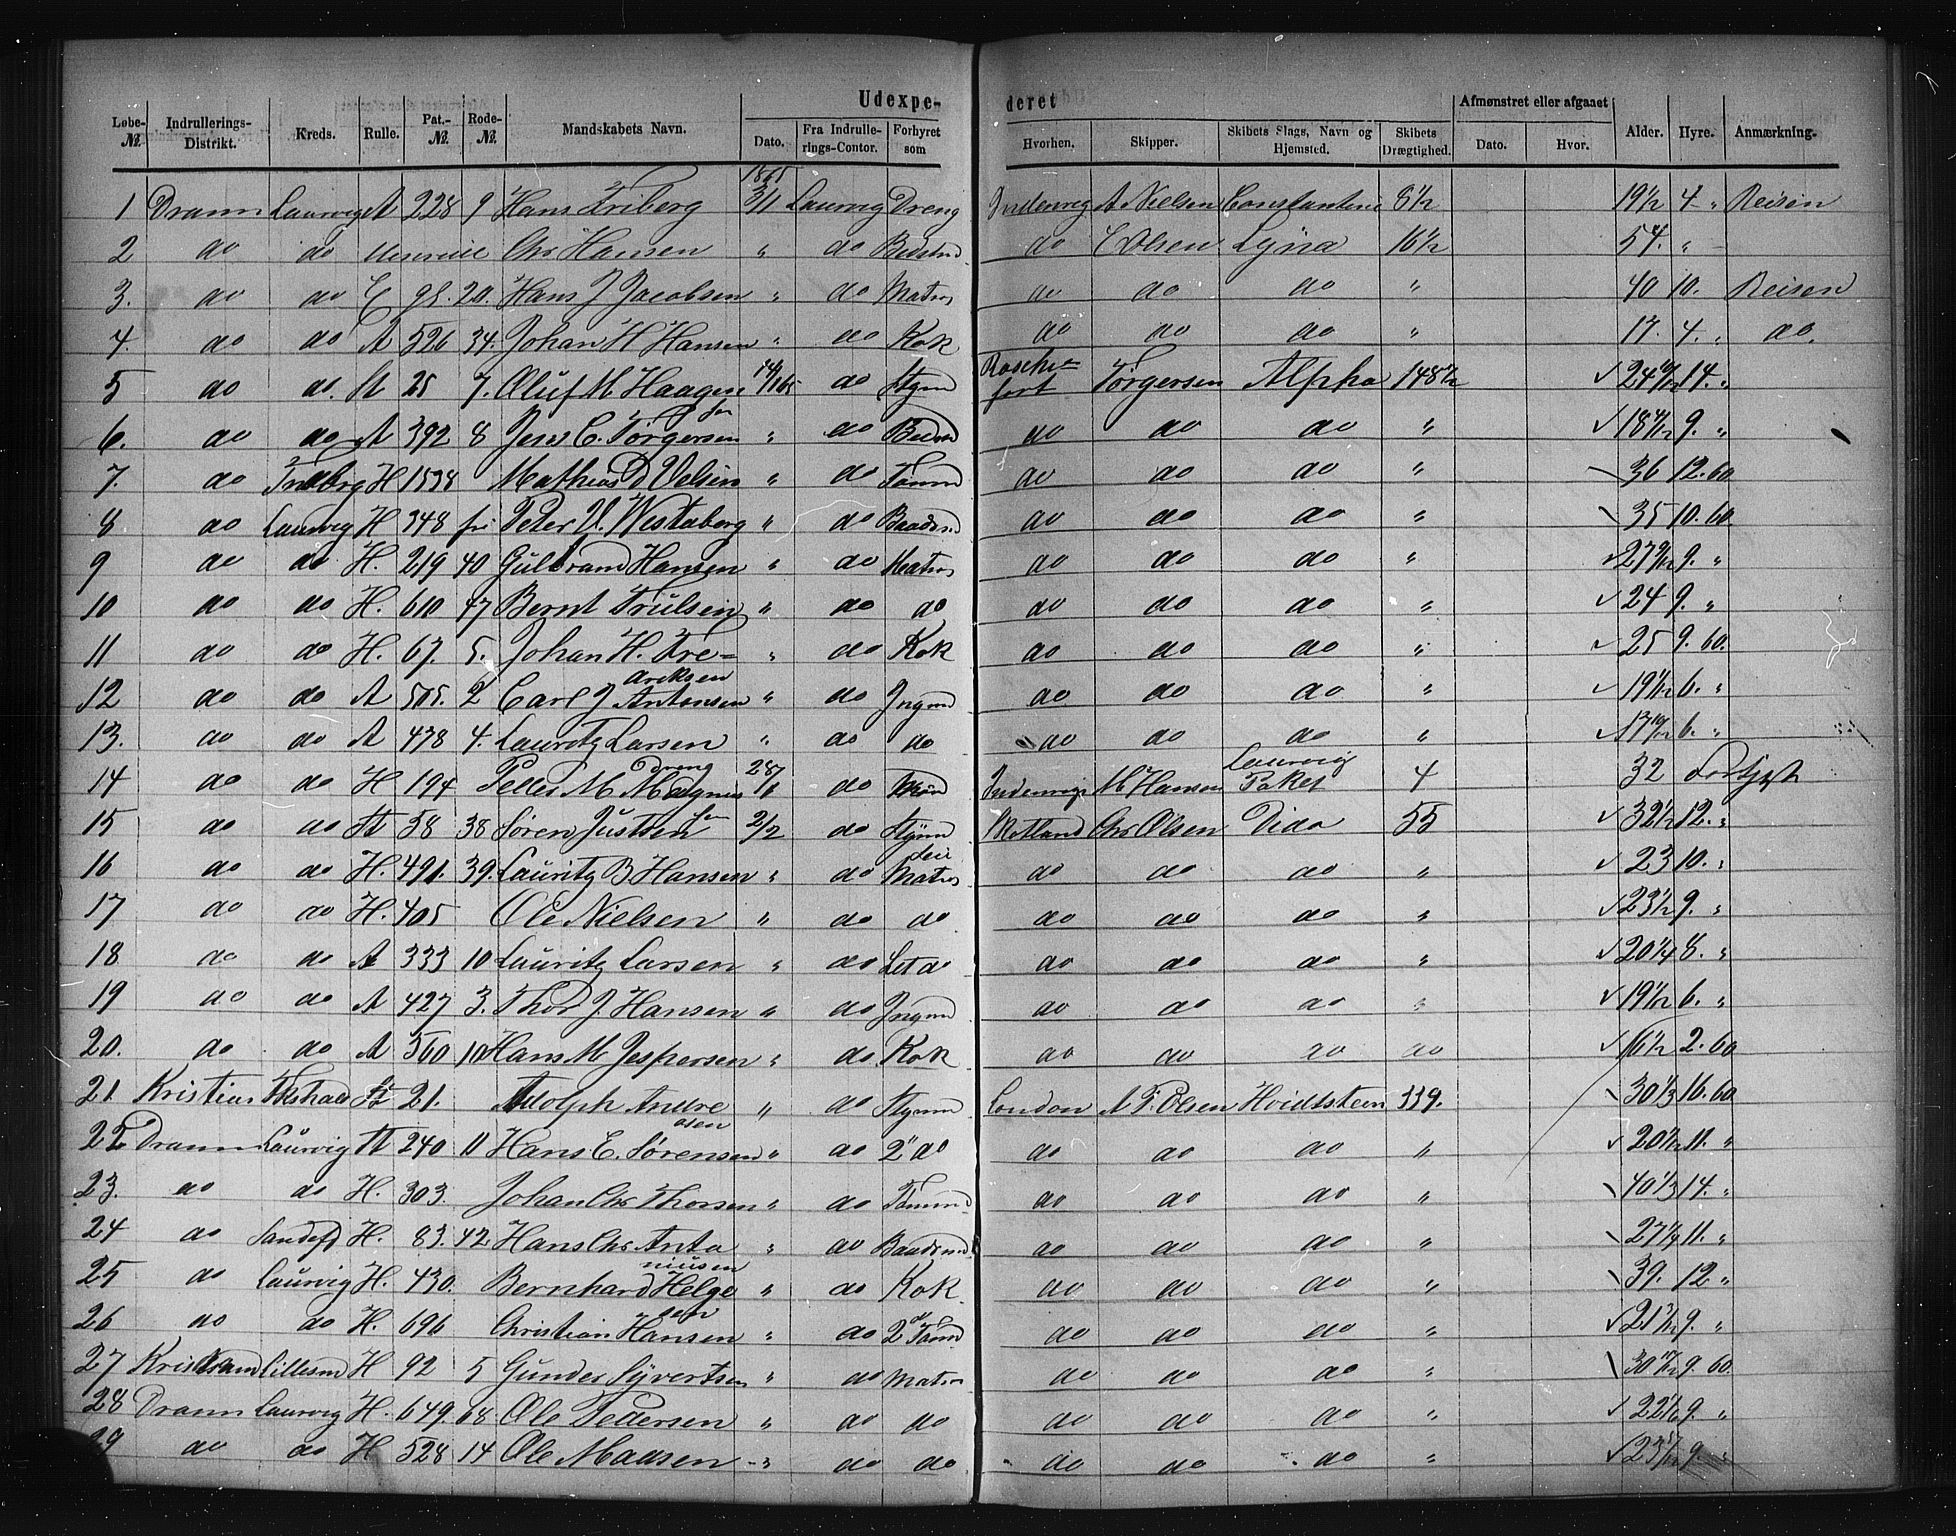 Udexpe- deret
Løbe-№. Indrullerings-Distrikt. Kreds. Rulle. Pat.-№. Rode-№. Mandskabets Navn. Dato. Fra Indrullerings-Contor. Forhyret som Hvorhen. Skipper. Skibets Slags, Navn og Hjemsted. Skibets Drægtighed. Afmønstret eller afgaaet Dato. Hvor. Alder. Hyre. Anmærkning.
1865
1 Dramn Laurvig A 228 9 Hans Friberg 3/1 Laurvig Dreng Indenrig A Nielsen Constantine 8 1/2 19 1/2 4 „ Reisen
2 do do Chr Hansen „ do Bedstmd do C Olsen 16 1/2 54. „
3. do do E 98. 20. Hans J Jacobsen „ do Matros do do do „ 40 10. Reisen
4. do do A 526 34. Johan H Hansen „ do Kok do do do „ 17. 4. „ do.
5 do do. A 25 7. Oluf M Haagensen 14/1 65 do Stymd Roschefort Tørgersen Alpha 148 1/2 24 10/12 14. „
6. do do A 392 8 Jens C. Tørgersen „ do Bedstmd do do do „ 18 9. „
7. do H 1538 Mathias D Velsin „ do Tømmd do do do „ 36 12. 60
8 do Laurvig H 348 fri Peter V. Westaberg „ do Baadsmd do do do „ 35 10. 60
9 do do H. 219 40 Gulbrand Hansen „ do Matros do do do „ 27 9. „
10 do do H. 610 47 Bernt Trulsen „ do do do do do „ 24 9. „
11 do do H. 67. 5. Johan H. Fredriksen „ do Kok do do do „ 25 9. 60.
12 do do A 505. 2 Carl J Antonsen „ do Jngmd do do do „ 19 6. „
13. do do A 478 4. Lauritz Larsen „ do do do do do „ 17 10/12 6. „
14 do do H 194 Petter M Magnus 28/1 do Indenrigs M Hansen Laurvig Paket 4 32
15 do do A 58 38 Søren Justsen 2/2 do Stymd Chr Olsen Dido 55 32 1/2 12. „
16 do do H. 491. 39. Lauritz B Hansen „ do Matros do do do „ 23 10. „
17 do do H. 405 Ole Nielsen „ do do do do do „ 23 1/2 9. „
18 do do A 333 10 Lauritz Larsen „ do Let do do do do „ 20 1/4 8. „
19 do do A 427 3. Thor J. Hansen „ do Jngmd do do do „ 19 1/2 6. „
20. do do A 560 10 Hans M Jespersen „ do Kok do do do do 16 1/2 2. 60
21. Kristian 21. Adolph Andreasen „ do Stymd London A. F. Olsen Hvidtsteen 339. 30 1/3 16. 60
22 Dramn Laurvig A 240 11 Hans C. Sørensen „ do 2" do do do do „ 20 1/2 11. „
23. do do H. 303. Johan Chr Thorsen „ do Tømmd do do do „ 40 1/3 14. „
24 do Sandefd H. 83. 42 Hans Chr Antoniusen „ do Baadsmd do do do „ 27 11. „
25 do Laurvig H. 430. Bernhard Helgesen „ do Kok do do do „ 39. 12 „
26 do do H. 696 Christian Hansen „ do 2" Tømd do do do „ 21 9. „
27 Kristiansand Lillesand H 92 5 Gunder Syvertsen „ do Matros do do do „ 30 9. 60.
28 Dramn Laurvig H. 649. 68 Ole Pedersen „ do do do do do „ 22 1/6 9. „
29 do do H 528 14 Ole Madsen „ do do do do do „ 23 9. „